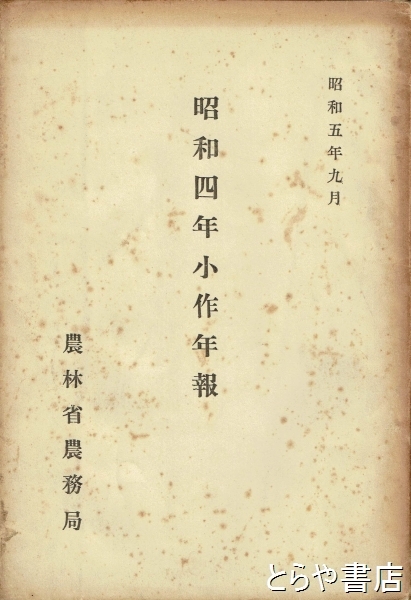 昭和五年九月
昭和四年小作年報
農林省農務局
とらや書店